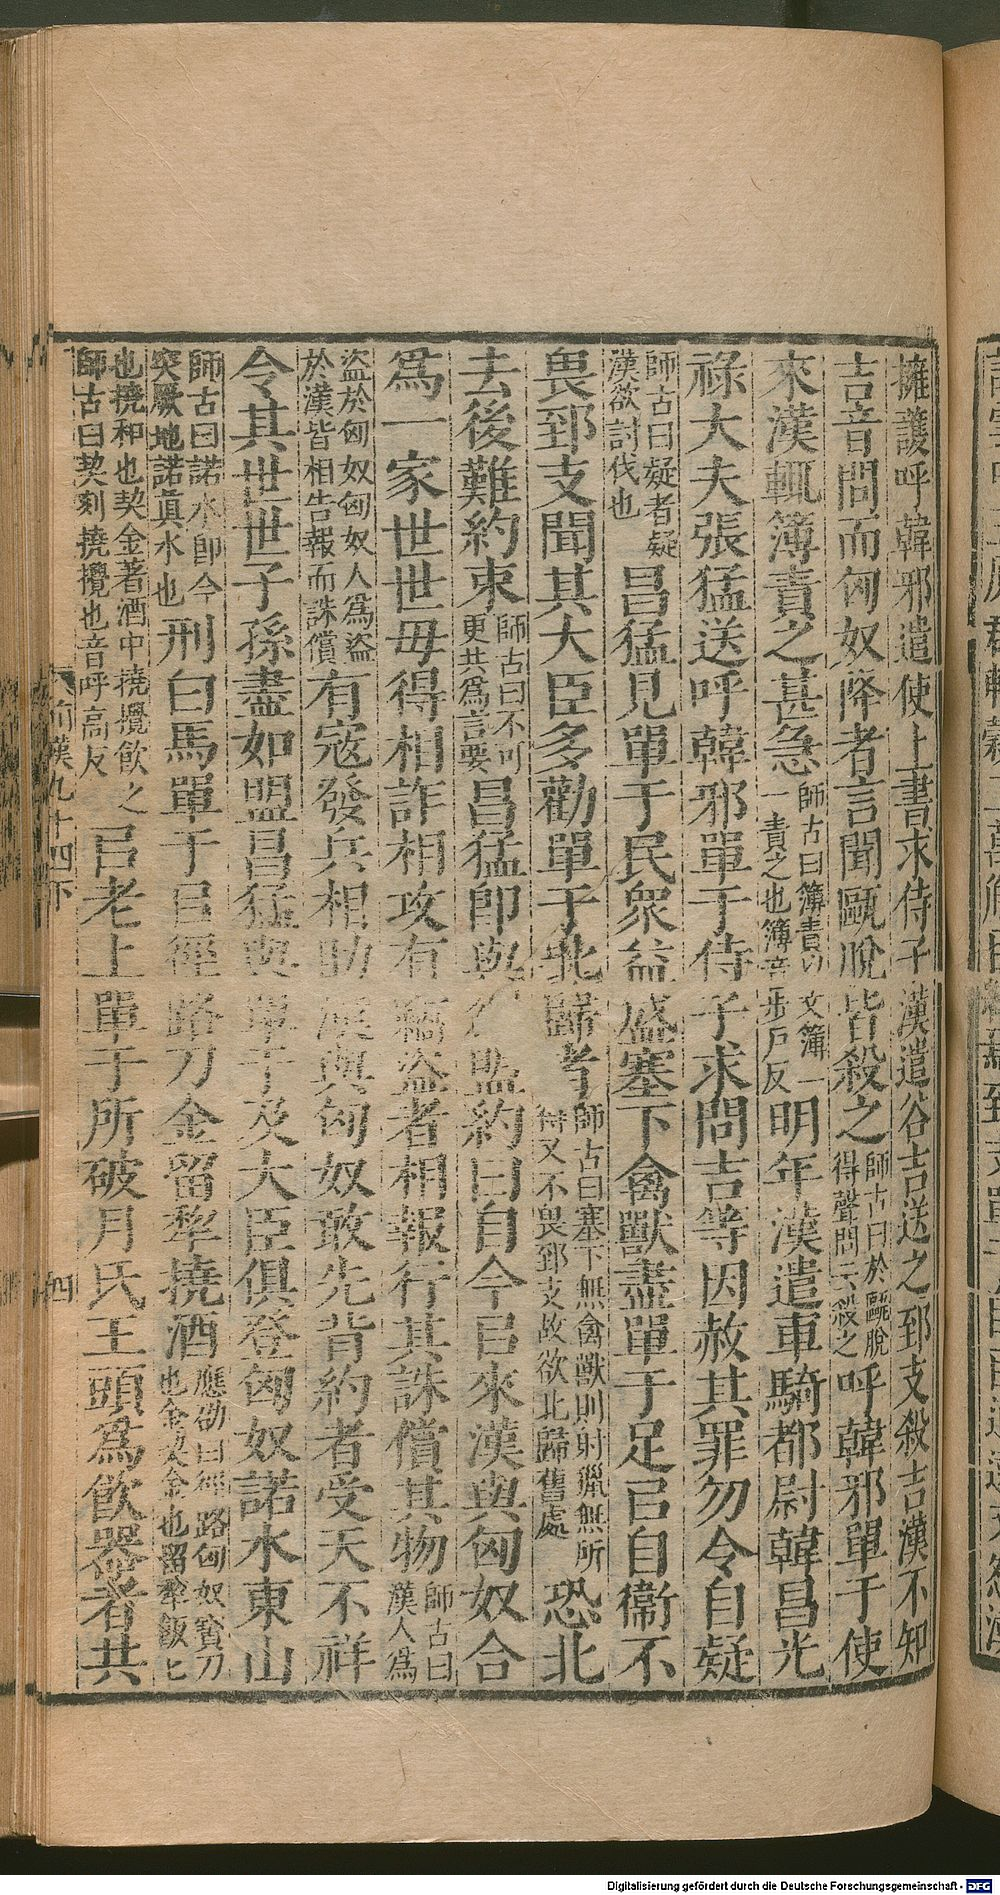 擁護呼韓邪遣使上書求侍子漢遣谷吉送之郅支殺吉漢不知
吉音問而匈奴降者言聞甌脫皆殺之師古曰於甌脫得聲問云殺之呼韓邪單于使
來漢輒簿責之甚急師古曰簿責以文簿一一責之也簿音步戶反明年漢遣車騎都尉韓昌光
祿大夫張猛送呼韓邪單于侍子求問吉等因赦其罪勿令自疑
師古曰疑者疑漢欲討伐也昌猛見單于民衆益盛塞下禽獸盡單于足㠯自衞不
畏郅支聞其大臣多勸單于北歸者師古曰塞下無禽獸則射獵無所得又不畏郅支故欲北歸舊處恐北
去後難約束師古曰不可更共爲言要昌猛卽與盟約曰自今㠯來漢與匈奴合
爲一家世世毋得相詐相攻有竊盜者相報行其誅償其物師古曰漢人爲
盜於匈奴匈奴人爲盜於漢皆相告報而誅償有寇發兵相助漢與匈奴敢先背約者受天不祥
令其世世子孫盡如盟昌猛與單于及大臣俱登匈奴諾水東山
師古曰諾水卽今突厥地諾眞水也刑白馬單于㠯徑路刀金留犂撓酒應劭曰徑路匈奴寶刀也金契金也留犂飯匕
也撓和也契金著酒中撓攪飮之師古曰契刻撓攪也音呼高反㠯老上單于所破月氏王頭爲飮器者共
前漢九十四下
四
Digitalisierung gefördert durch die Deutsche Forschungsgemeinschaft - DFG